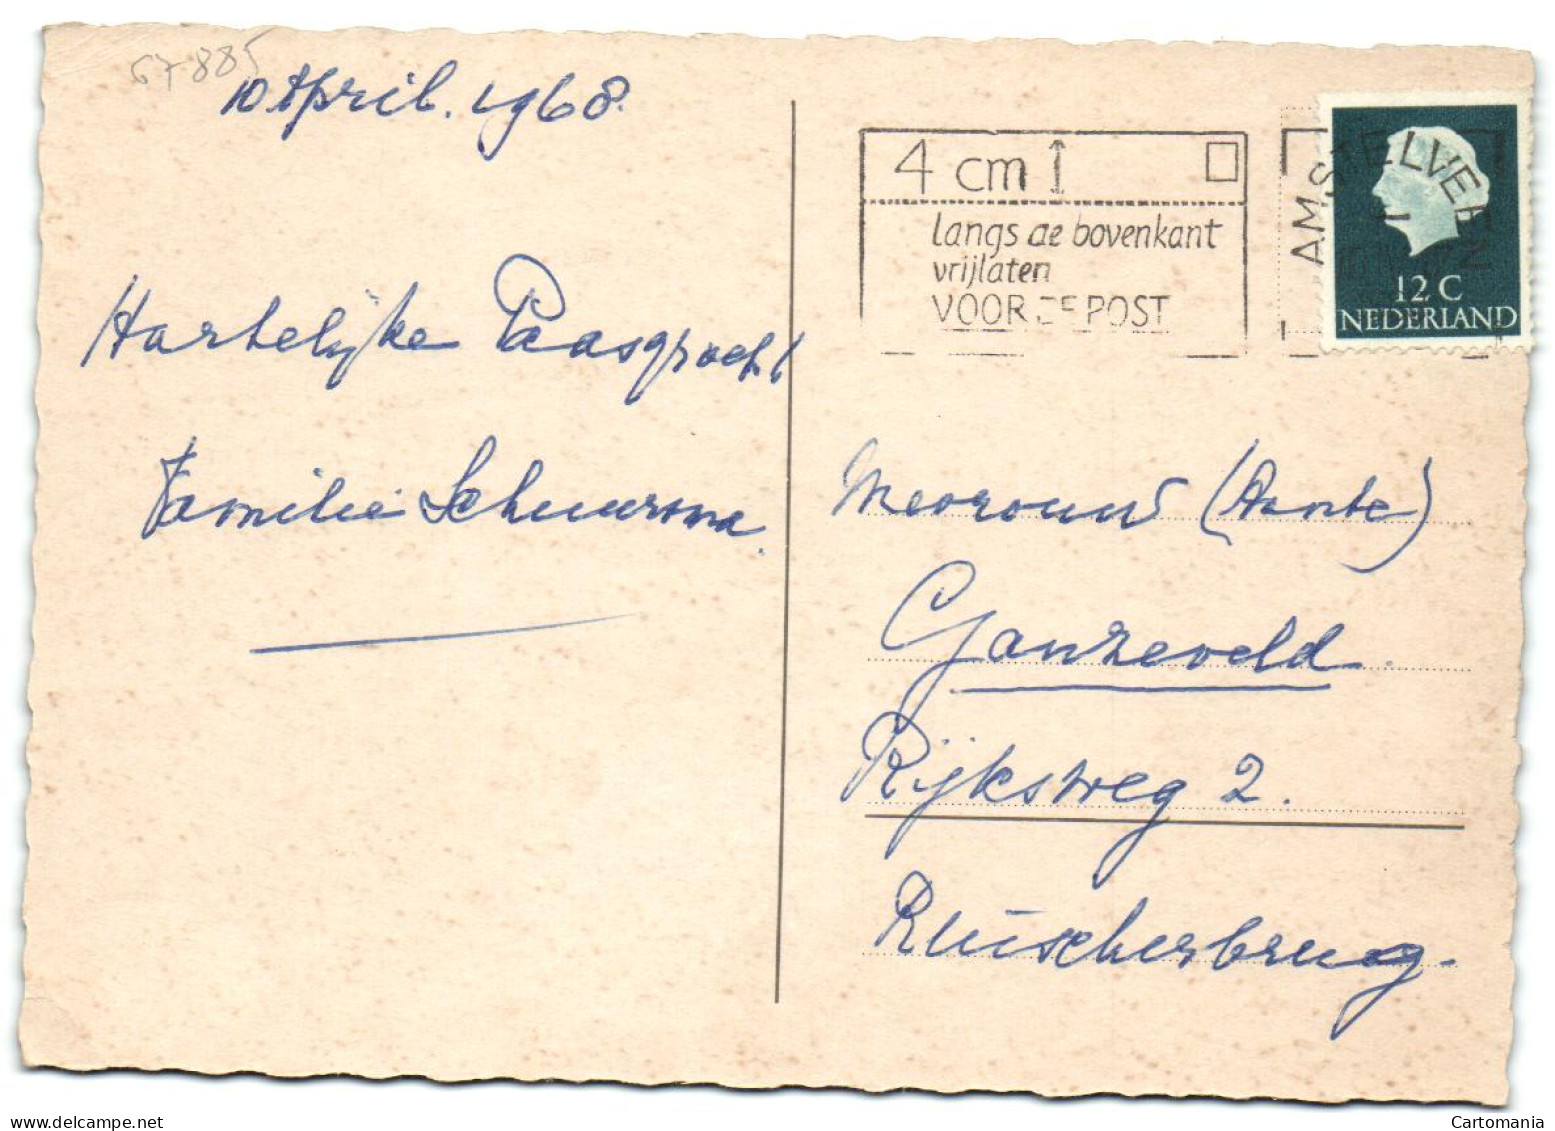 67885
10 April. 1968.
Hartelijke Paasgroet!
Familie Schuursma.
4 cm
langs de bovenkant
vrijlaten
VOOR DE POST
AMSTELVEEN
12 C
NEDERLAND
Mevrouw (Tante)
Ganzeveld.
Rijksweg 2.
Ruischerbrug.
www.delcampe.net
Cartomania